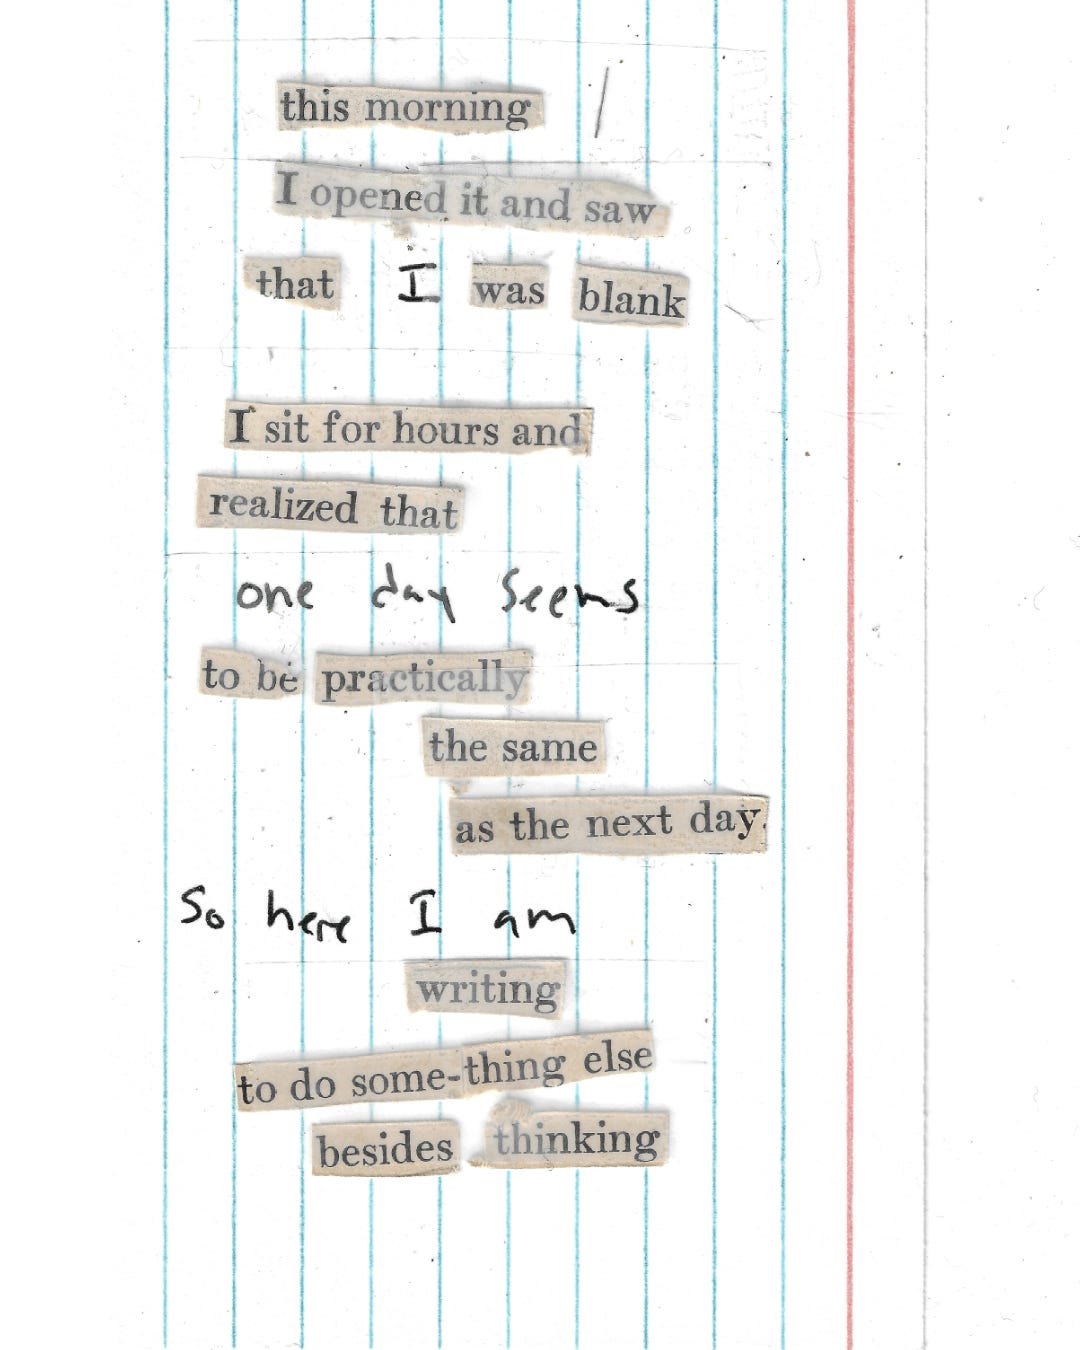 this morning
I opened it and saw
that I was blank
I sit for hours and
realized that
one day seems
to be practically
the same
as the next day.
So here I am
writing
to do some-thing else
besides thinking